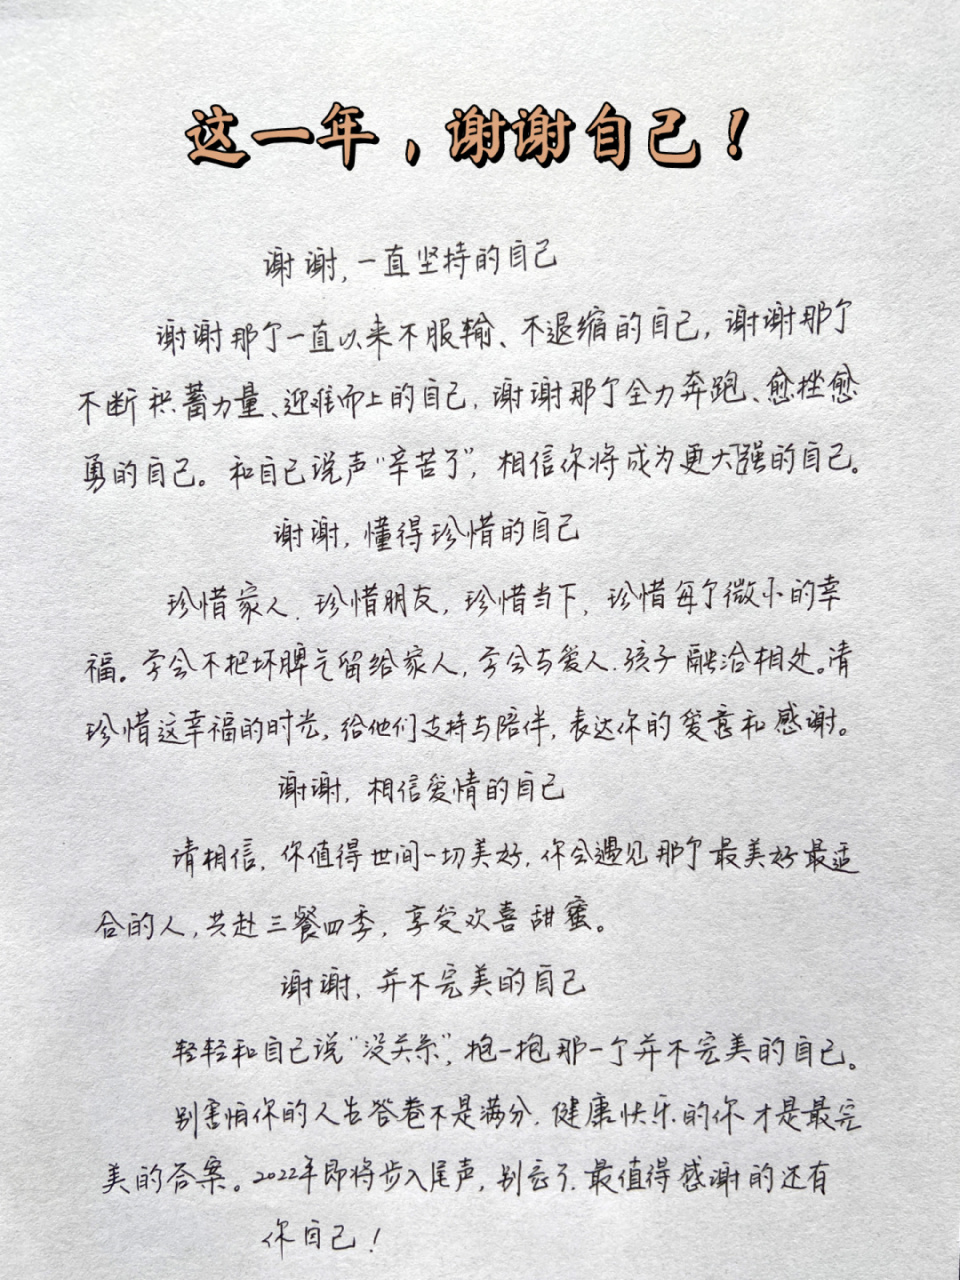 这一年，谢谢自己！
谢谢,一直坚持的自己
谢谢那个一直以来不服输、不退缩的自己,谢谢那个
不断积蓄力量、迎难而上的自己,谢谢那个全力奔跑、愈挫愈
勇的自己。和自己说声“辛苦了”,相信你将成为更大强的自己。
谢谢,懂得珍惜的自己
珍惜家人.珍惜朋友,珍惜当下,珍惜每个微小的幸
福。学会不把坏脾气留给家人,学会与爱人.孩子融洽相处。请
珍惜这幸福的时光,给他们支持与陪伴,表达你的爱意和感谢。
谢谢,相信爱情的自己
请相信,你值得世间一切美好,你会遇见那个最美好最适
合的人,共赴三餐四季,享受欢喜甜蜜。
谢谢,并不完美的自己
轻轻和自己说“没关系”,抱一抱那一个并不完美的自己。
别害怕你的人生答卷不是满分.健康快乐的你才是最完
美的答案。2022年即将步入尾声,别忘了.最值得感谢的还有
你自己!